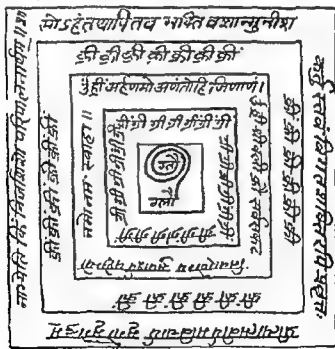 सोऽहं तथापि तव भक्ति वशान्मुनीश
कर्तुं स्तवं विगत शक्ति रपि प्रवृत्तः
प्रीत्यात्मवीर्यमविचार्य मृगो मृगेन्द्रम्
नाभ्येति किं निजशिशोः परिपालनार्थम् ॥५॥
क्रीं क्रीं क्रीं क्रीं क्रीं क्रीं क्रीं
क्रीं क्रीं क्रीं क्रीं क्रीं
क्रीं क्रीं क्रीं क्रीं
क्रीं क्रीं क्रीं क्रीं क्रीं
ॐ ह्रीं अर्हं णमो अणंतोहि जिणाणं।
ॐ ह्रीं श्रीं क्लीं क्रौं सर्वसंकट
निवारणेभ्यः सुपार्श्व यक्षेभ्यो
नमो नमः स्वाहा॥
श्रीं श्रीं श्रीं श्रीं श्रीं श्रीं
श्रीं श्रीं श्रीं श्रीं श्रीं
श्रीं श्रीं श्रीं श्रीं श्रीं
श्रीं श्रीं श्रीं श्रीं श्रीं